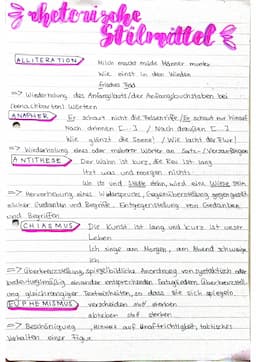 rhetorische
Stilmittel
ALLITERATION Milch macht müde Männer munter
Wie einst in den Winden
=> Wiederholung des Anfangslauts/der Anfangsbuchstaben bei
(benachbarten) Wörtern
ANAPHER Er schaut nicht die Felsenriffe/Er schaut nur hinauf
Nach drinnen [...] / Nach draußen [...]
Wie glänzt die Sonne! / Wie lacht die Flur!
=> Wiederholung eines oder mehrerer Wörter an Satz-/Versanfängen
ANTITHESE Der Wahn ist kurz, die Reu ist lang
Itzt was und morgen nichts
Wo itzt und Städte stehn, wird eine Wiese sein
=> Hervorhebung eines Widerspruchs, Gegenüberstellung gegensätzlicher Gedanken und Begriffe, Entgegenstellung von Gedanken
und Begriffen
CHIASMUS Die Kunst ist lang und kurz ist unser
Leben
Ich singe am Morgen, am Abend schweige
ich
=> Überkreuzstellung, spiegelbildliche Anordnung von syntaktisch oder
bedeutungsmäßig einander entsprechenden Satzgliedern, Überkreuzstellung gleichrangiger Texteinheiten, so dass sie sich spiegeln
EUPHEMISMUS verscheiden statt sterben
ableben statt sterben
=> Beschönigung, Hinweis auf Unaufrichtigkeit, taktisches
Verhalten einer Figur